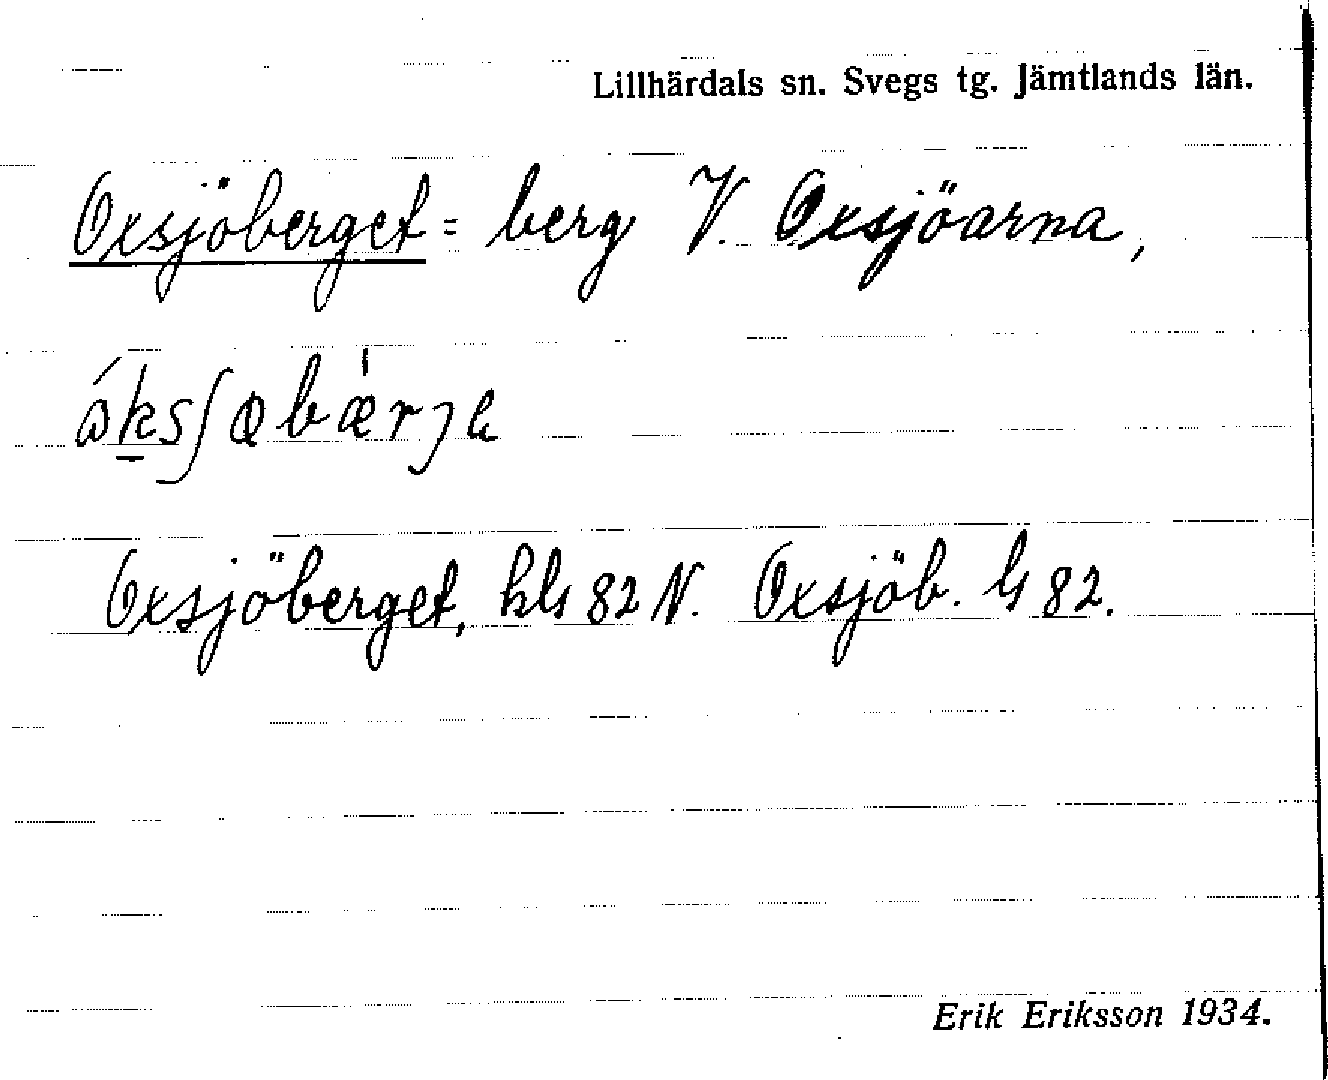 Lillhärdals sn. Svegs tg. Jämtlands län.
Oxsjöberget = berg V. Oxsjöarna,
Oxsjöberget, hls 82 N. Oxsjöb. ls 82.
Erik Eriksson 1934.